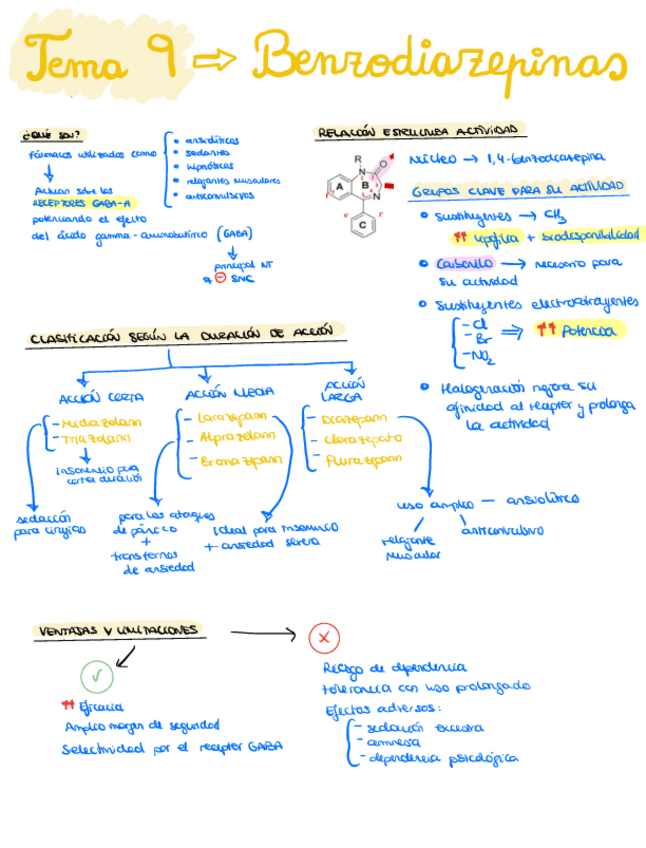 Tema 9 ⇒ Benzodiazepinas
¿QUÉ SON?
Fármacos utilizados como
• ansiolíticos
• sedantes
• hipnóticos
• relajantes musculares
• anticonvulsivos
Actúan sobre los
RECEPTORES GABA-A
potenciando el efecto
del ácido gamma-aminobutírico (GABA)
principal NT
⊖ SNC
RELACIÓN ESTRUCTURA ACTIVIDAD
R
N
O
A
B
N
C
1
2
3
4
5
7
6'
2'
Núcleo → 1,4-benzodiacepina
GRUPOS CLAVE PARA SU ACTIVIDAD
• Sustituyentes → CH3
↑↑ lipofilia + biodisponibilidad
• Carbonilo → necesario para
su actividad
• Sustituyentes electroatrayentes
- Cl
- Br
- NO2
⇒ ↑↑ Potencia
• Halogenación mejora su
afinidad al receptor y prolonga
la actividad
CLASIFICACIÓN SEGÚN LA DURACIÓN DE ACCIÓN
ACCIÓN CORTA
- Midazolam
- Triazolam
insomnio por
corta duración
sedación
para cirugías
ACCIÓN MEDIA
- Lorazepam
- Alprazolam
- Bromazepam
para los ataques
de pánico
+
transtornos
de ansiedad
ideal para insomnio
+ ansiedad severa
ACCIÓN
LARGA
- Diazepam
- Clorazepato
- Flurazepam
uso amplio — ansiolítico
relajante
muscular
anticonvulsivo
VENTAJAS Y LIMITACIONES
↑↑ Eficacia
Amplio margen de seguridad
Selectividad por el receptor GABA
Riesgo de dependencia
tolerancia con uso prolongado
Efectos adversos:
- sedación excesiva
- amnesia
- dependencia psicológica